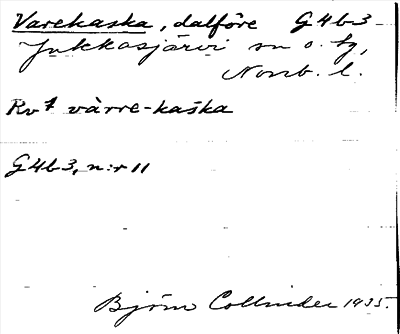 Varekaska, dalföre G4b3
Jukkasjärvi sn o. tg,
Norrb. l.
Rv⁷ vàrre-kaška
G4b3, n:r 11
Björn Collinder 1935.